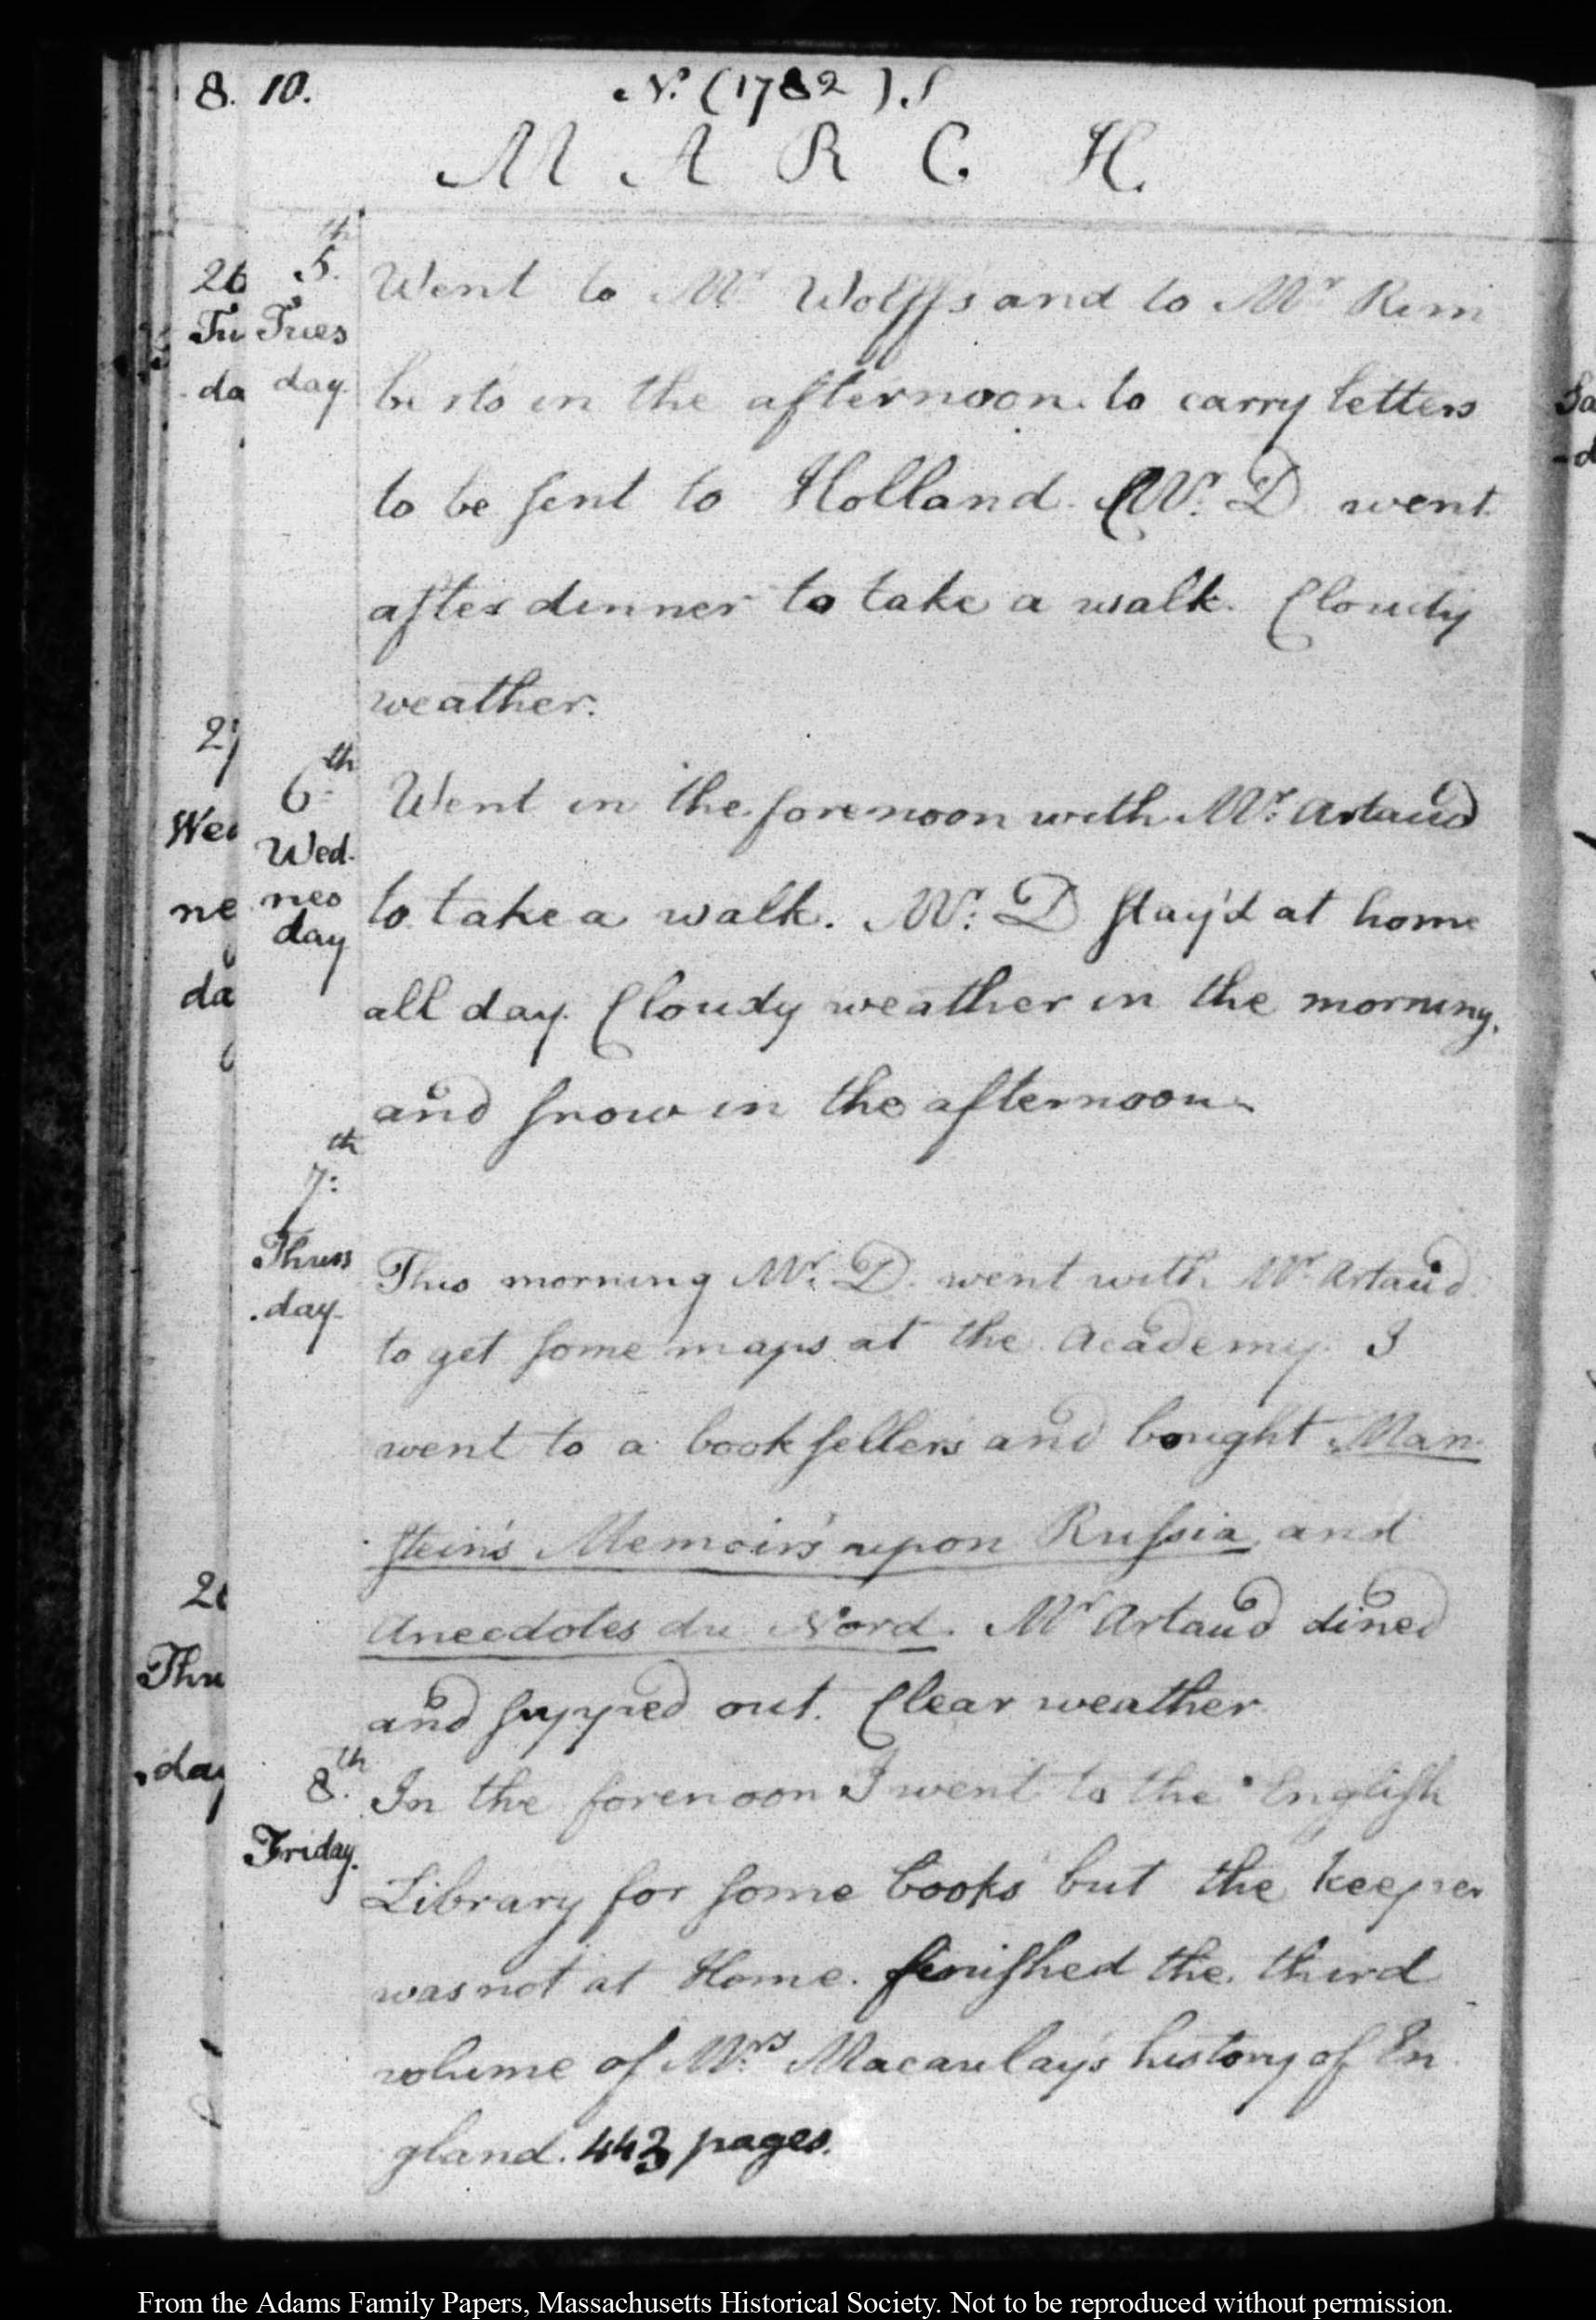 8. 10. N.º (1782).S
M A R C. H.
26 5.th Went to Mr Wolff's and to Mr Rim
Tu Tues
da day. berts in the afternoon. to carry letters
to be sent to Holland. Mr. D. went
after dinner to take a walk. Cloudy
weather.
27
6th Went in the forenoon with Mr. Artaud
Wed Wed.
ne nes to take a walk. Mr. D stay'd at home
day
da all day. Cloudy weather in the morning,
and snow in the afternoon.
7:th
Thurs
This morning Mr. D. went with Mr. Artaud
.day.
to get some maps at the Academy. I
went to a booksellers and bought Man-
stein's Memoirs upon Russia and
2
Anecdotes du Nord. Mr Artaud dined
Thu
and supped out. Clear weather.
.day 8.th In the forenoon I went to the English
Friday.
Library for some books but the keeper
was not at Home. finished the third
volume of Mrs. Macaulay's history of En
gland. 443 pages.
From the Adams Family Papers, Massachusetts Historical Society. Not to be reproduced without permission.